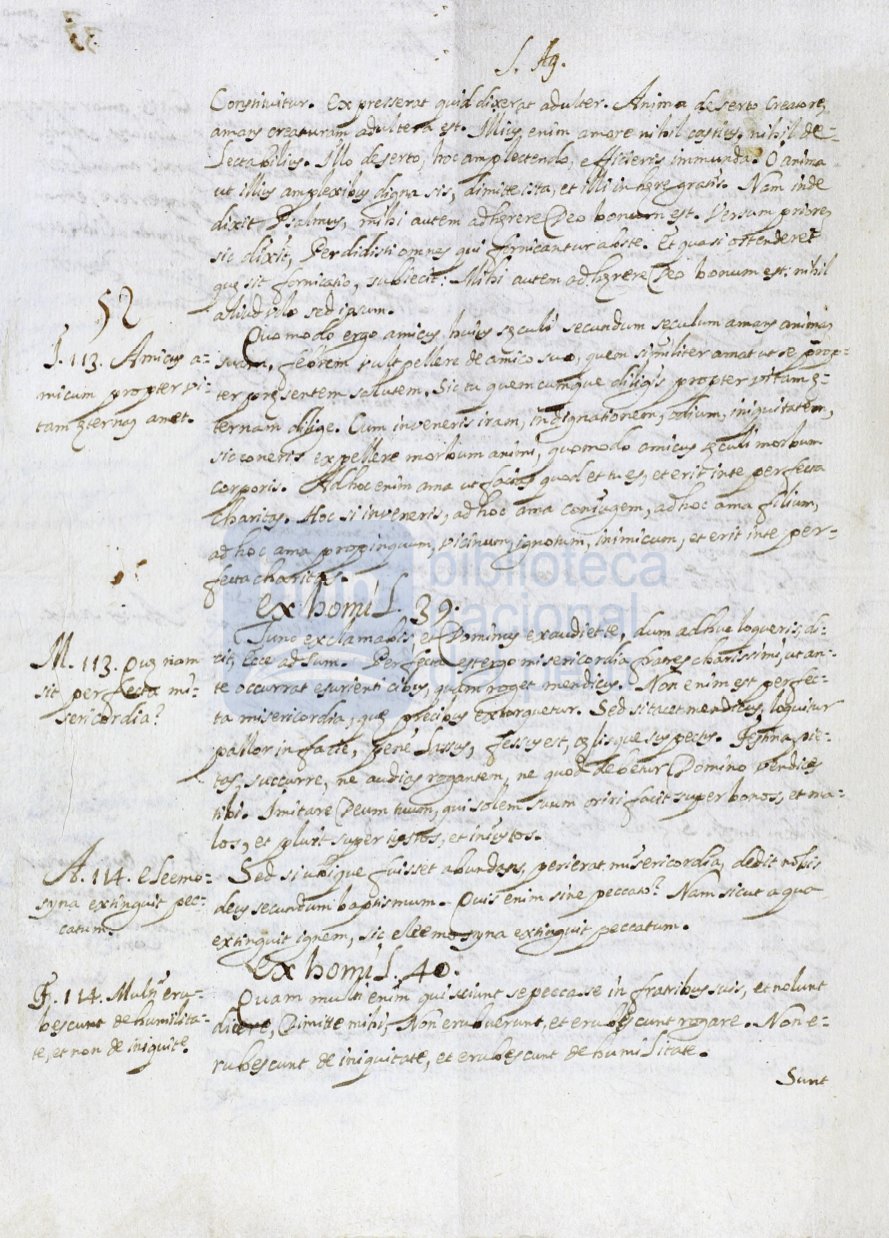 S. Ag.
Constituitur. Expresserat quid dixerat adulter. Anima deserto Creatore,
amans creaturam adultera est. Illius enim amore nihil castius, nihil de-
lectabilius. Illo deserto, hoc amplectendo, efficieris inmunda. O anima
ut illius amplexibus digna sis, dimitte ista, et illi inhęre gratis. Nam inde
dixit Psalmus, mihi autem adherere Deo bonum est. Versum priorem
sic dixit, Perdidisti omnes qui fornicantur abste. Et quasi ostenderet
quę sit fornicatio, subiecit: Mihi autem adhęrere Deo bonum est: nihil
aliud volo sed ipsum.
52
I. 113. Amicus a-
micum propter vi-
tam ęternam amet.
Quomodo ergo amicus huius sęculi secundum seculum amans animam
suam, febrem vult pellere de amico suo, quem similiter amat ut se prop-
ter pręsentem salutem. Sic tu quemcumque diligis propter vitam ę-
ternam dilige. Cum inveneris iram, indignationem, odium, iniquitatem,
sic coneris expellere morbum animi, quomodo amicus sęculi morbum
corporis. Ad hoc enim ama ut facias quod et tu es, et erit inte perfecta
charitas. Hoc si inveneris, ad hoc ama conjugem, ad hoc ama filium,
ad hoc ama propinquum, vicinum, ignotum, inimicum, et erit inte per-
fecta charitas.
Ex homil. 39.
M. 113. Quęnam
sit perfecta mi-
sericordia?
Tunc exclamabis, et Dominus exaudiet te, dum adhuc loqueris, di-
cit, Ecce adsum. Perfecta est ergo misericordia fratres charissimi, ut an-
te occurrat esurienti cibus, quam roget mendicus. Non enim est perfec-
ta misericordia, quę precibus extorquetur. Sed si tacet mendicus, loquitur
pallor in facie,
succurre, ne audias rogantem, ne quod debetur Domino vendices
tibi. Imitare Deum tuum, qui solem suum oriri facit super bonos, et ma-
los, et pluit super iustos, et iniustos.
A. 114. Eleemo-
syna extinguit pec-
catum.
Sed si ubique fuisset abundans, perierat misericordia, dedit nobis
deus secundum baptismum. Quis enim sine peccato? Nam sicut aqua
extinguit ignem, sic eleemosyna extinguit peccatum.
Ex homil. 40.
114. Multi eru-
bescunt de humilita-
te, et non de iniquite.
Quam multi enim qui sciunt se peccasse in fratribus suis, et nolunt
dicere, Dimitte mihi. Non erubuerunt, et erubescunt rogare. Non e-
rubescunt de iniquitate, et erubescunt de humilitate.
Sunt
biblioteca
nacional
del perú